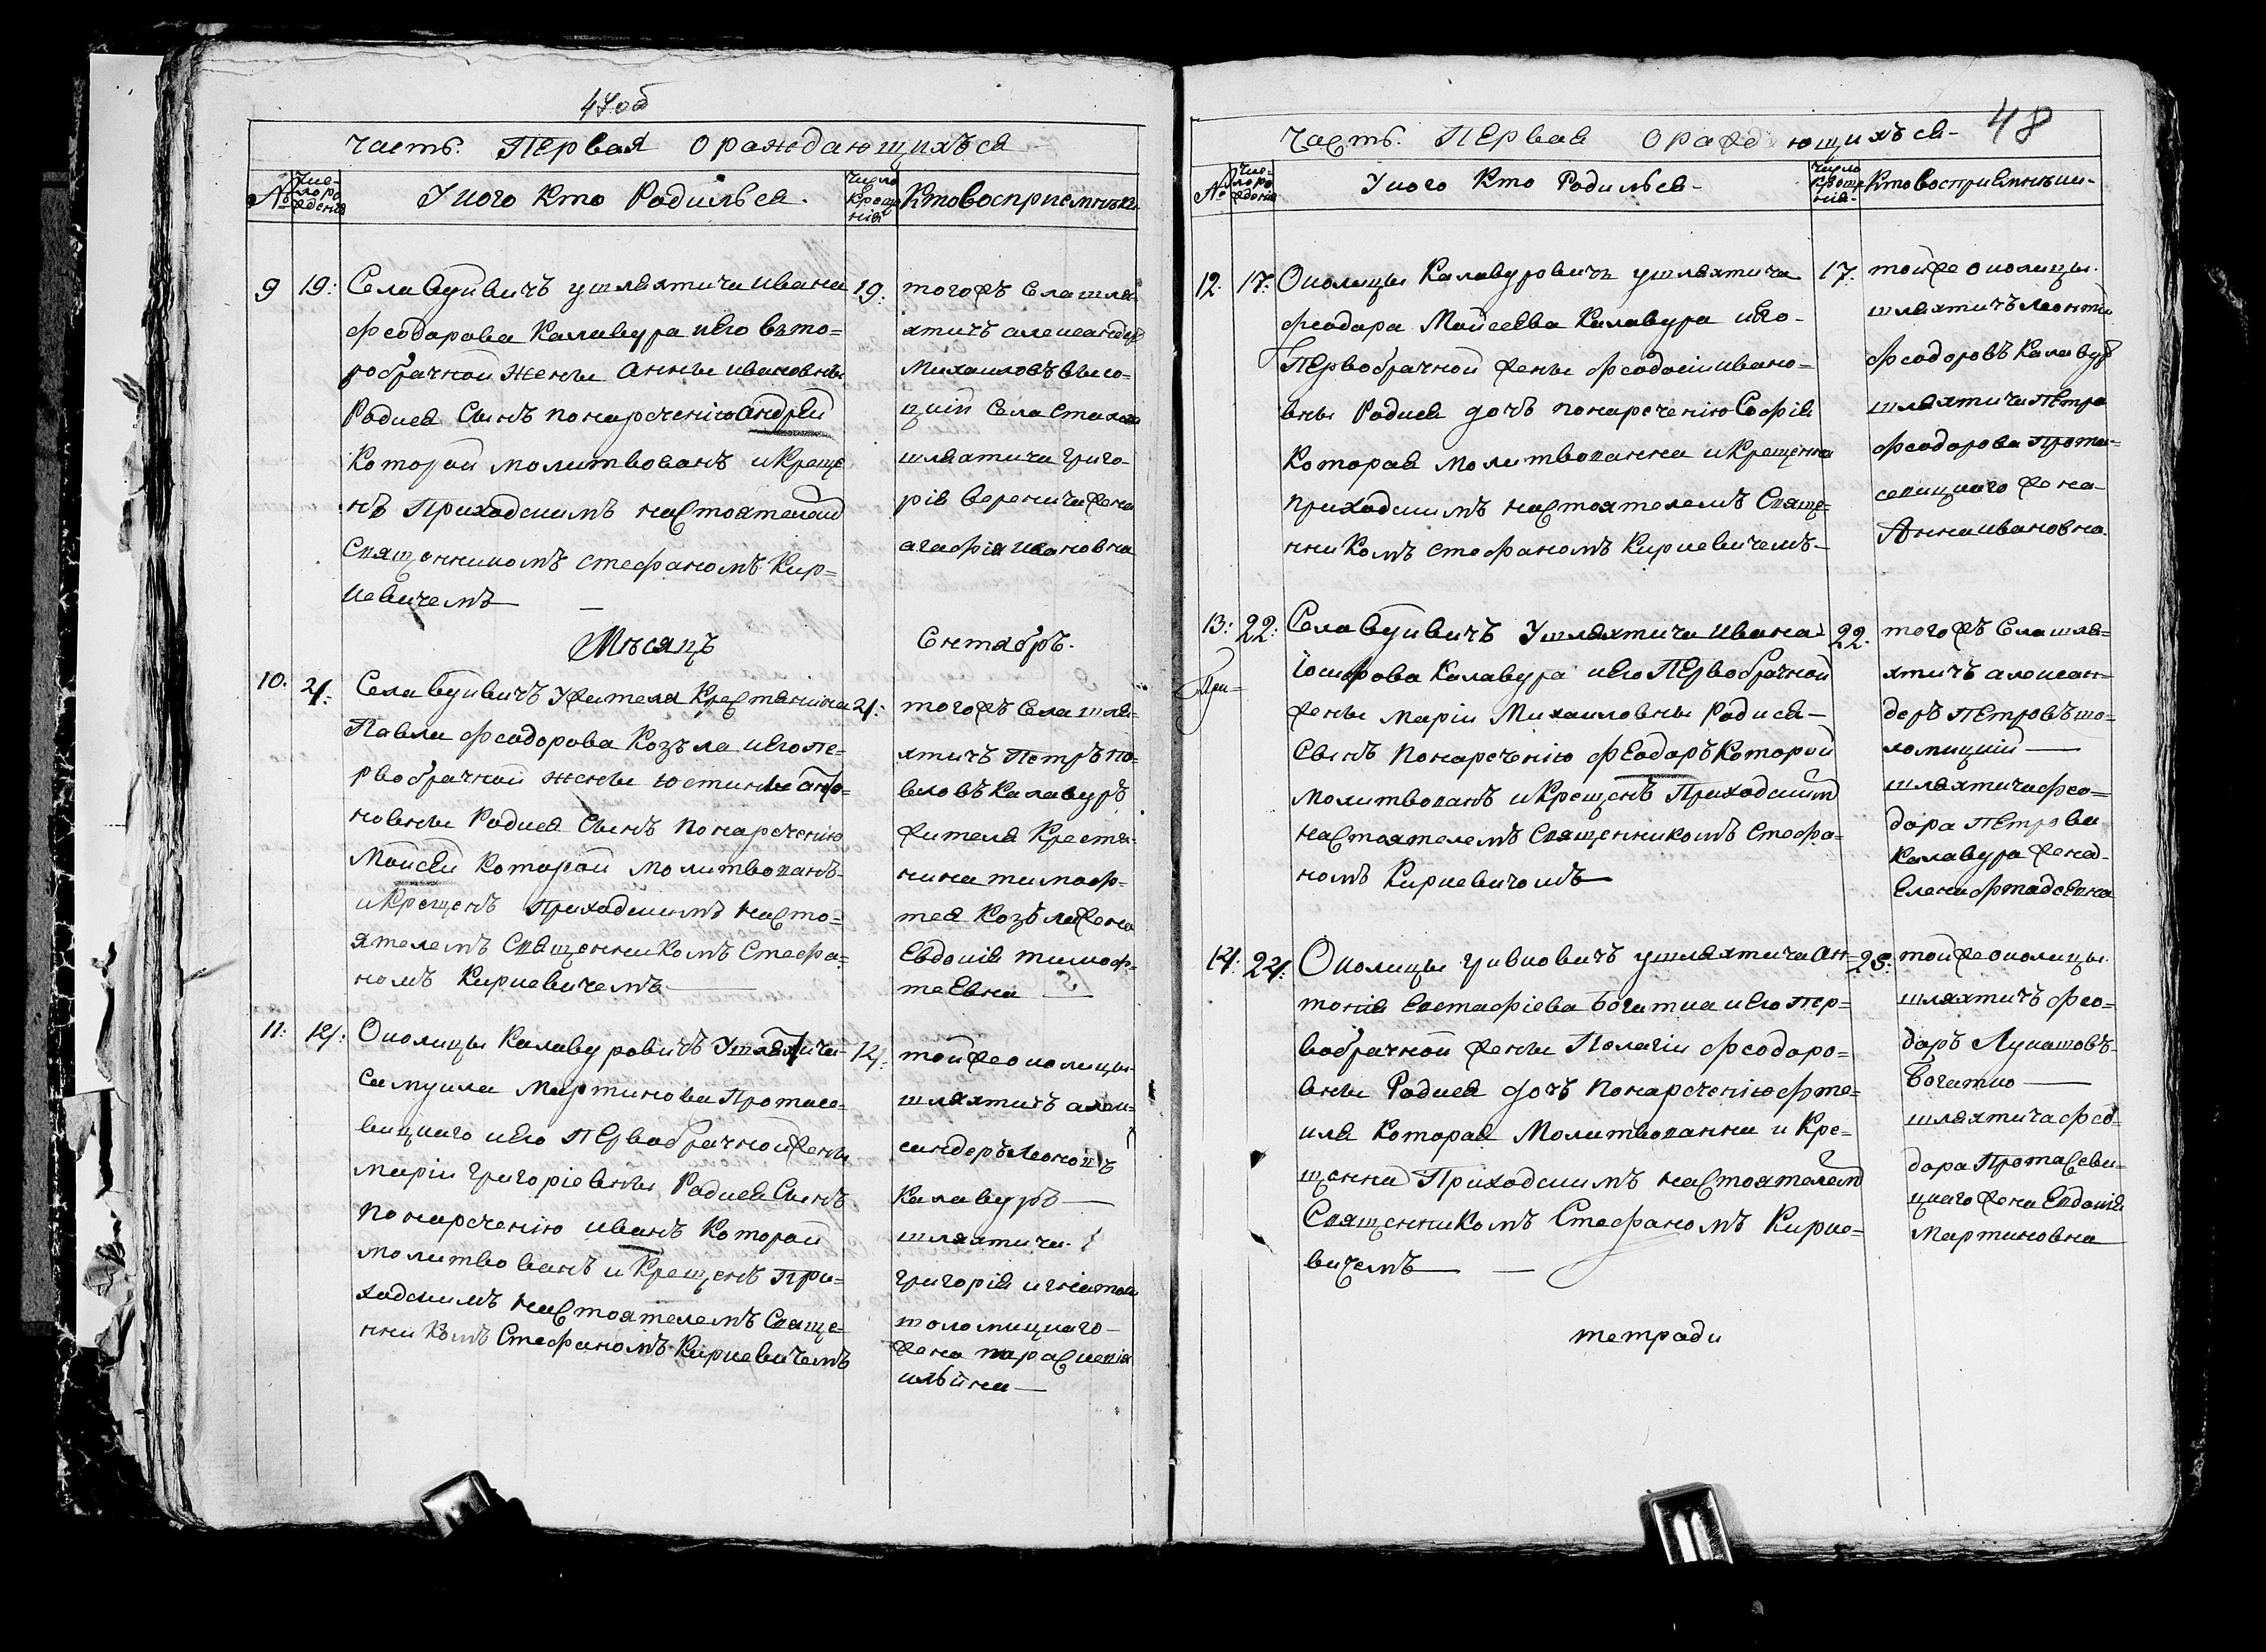 47об
часть. Первая О раждающихъся
№
Чис-
ло ро
жденiя
У кого Кто Родилься.
Число
Креще
нiя
Кто восприемники
9
19:
Села Вуйвичъ у шляхтича Ивана
Феодорова Калавура и его вто=
робрачной жены Анны Ивановны
Родися Сынъ по наречению Андрей
Которой молитвованъ и Креще
нъ Приходскимъ настоятелем
Священникомъ Стефаномъ Кир=
кевичемъ —
19:
тогожъ Села шля-
хтичъ александръ
Михаиловъ Высо-
цкiй Села Стахова
шляхтича Григо-
рiя Веренича жена
агафiя Ивановна
Мѣсяцъ Сентябръ.
10.
4:
Села Вуйвичъ Ужителя Крестянина
Павла Феодорова Козъла и его пе-
рвобрачной жены Юстины Анто=
новны Родися Сынъ по наречению
Мойсей Которой молитвованъ
и Крещенъ Приходскимъ насто=
ятелемъ Священникомъ Стефа=
номъ Киркевичемъ
4:
тогожъ Села шля-
хтичъ Петръ Па-
вловъ Калавуръ
жителя Крестя-
нина тимоф-
тея Козъла жена
Евдокiя тимоф-
теевна —
11:
14:
Околицы Калавуровичъ Ушляхтича
Самуила Мартинова Протасе-
вицкаго и его Первобрачной жены
Марiи Григорiевны Родися Сынъ
По наречению иванъ Которой
молитвованъ и Крещенъ При=
ходскимъ настоятелемъ Свяще-
нникомъ Стефаномъ Киркевичемъ
14:
тойже околицы
шляхтичъ алек-
сандеръ Леоновъ
Калавуръ —
шляхтича
Григорiя игнатова
шоломицкаго-
жена параскевiя
ильина —
48
Часть. Первая О раждающихъся-
№
Чис-
ло ро
жденiя
У кого Кто Родилься-
Число
Креще
нiя-
Кто восприемники-
12.
17:
Околицы Калавуровичъ ушляхтича
феодора Мойсеева Калавура и его-
Первобрачной жены феодосiи Ивано=
вны Родися дочъ по наречению Софiя
Которая молитвованна и крещенна
приходскимъ настоятелемъ Свяще-
нникомъ Стефаномъ Киркевичемъ-
17:
тойже околицы.
шляхтичъ Леонтiй
феодоровъ Калавур
шляхтича Петра
феодорова Прота-
севицкаго жена
Анна Ивановна.
13:
22:
Села Вуйвичъ Ушляхтича Ивана
Iосифова Калавура и его Первобрачной
жены марiи Михаиловны Родися-
Сынъ по наречению феодоръ Которой
молитвованъ и Крещенъ Приходским
настоятелемъ Священникомъ Стефа=
номъ Киркевичомъ
При=
22.
тогожъ Села шля=
хтичъ алексан-
деръ Петровъ шо-
ломицкiй —
шляхтича фео=
дора Петрова
Калавура жена-
Елена фтадеевна
14:
24:
Околицы гривковичъ ушляхтича Ан=
тонiя Евстафiева Богатка и его пер=
вобрачной жены Пелагiи феодоро=
вны Родися дочъ по наречению фте=
кля Которая Молитвованна и Кре-
щенна Приходскимъ настоятелем
Священникомъ Стефаномъ Кирке=
вичемъ —
25:
тойже околицы.
шляхтичъ фео=
доръ Лукашовъ-
Богатко —
шляхтича фео-
дора Протасеви-
цкаго жена Евдокiя
Мартиновна
тетради